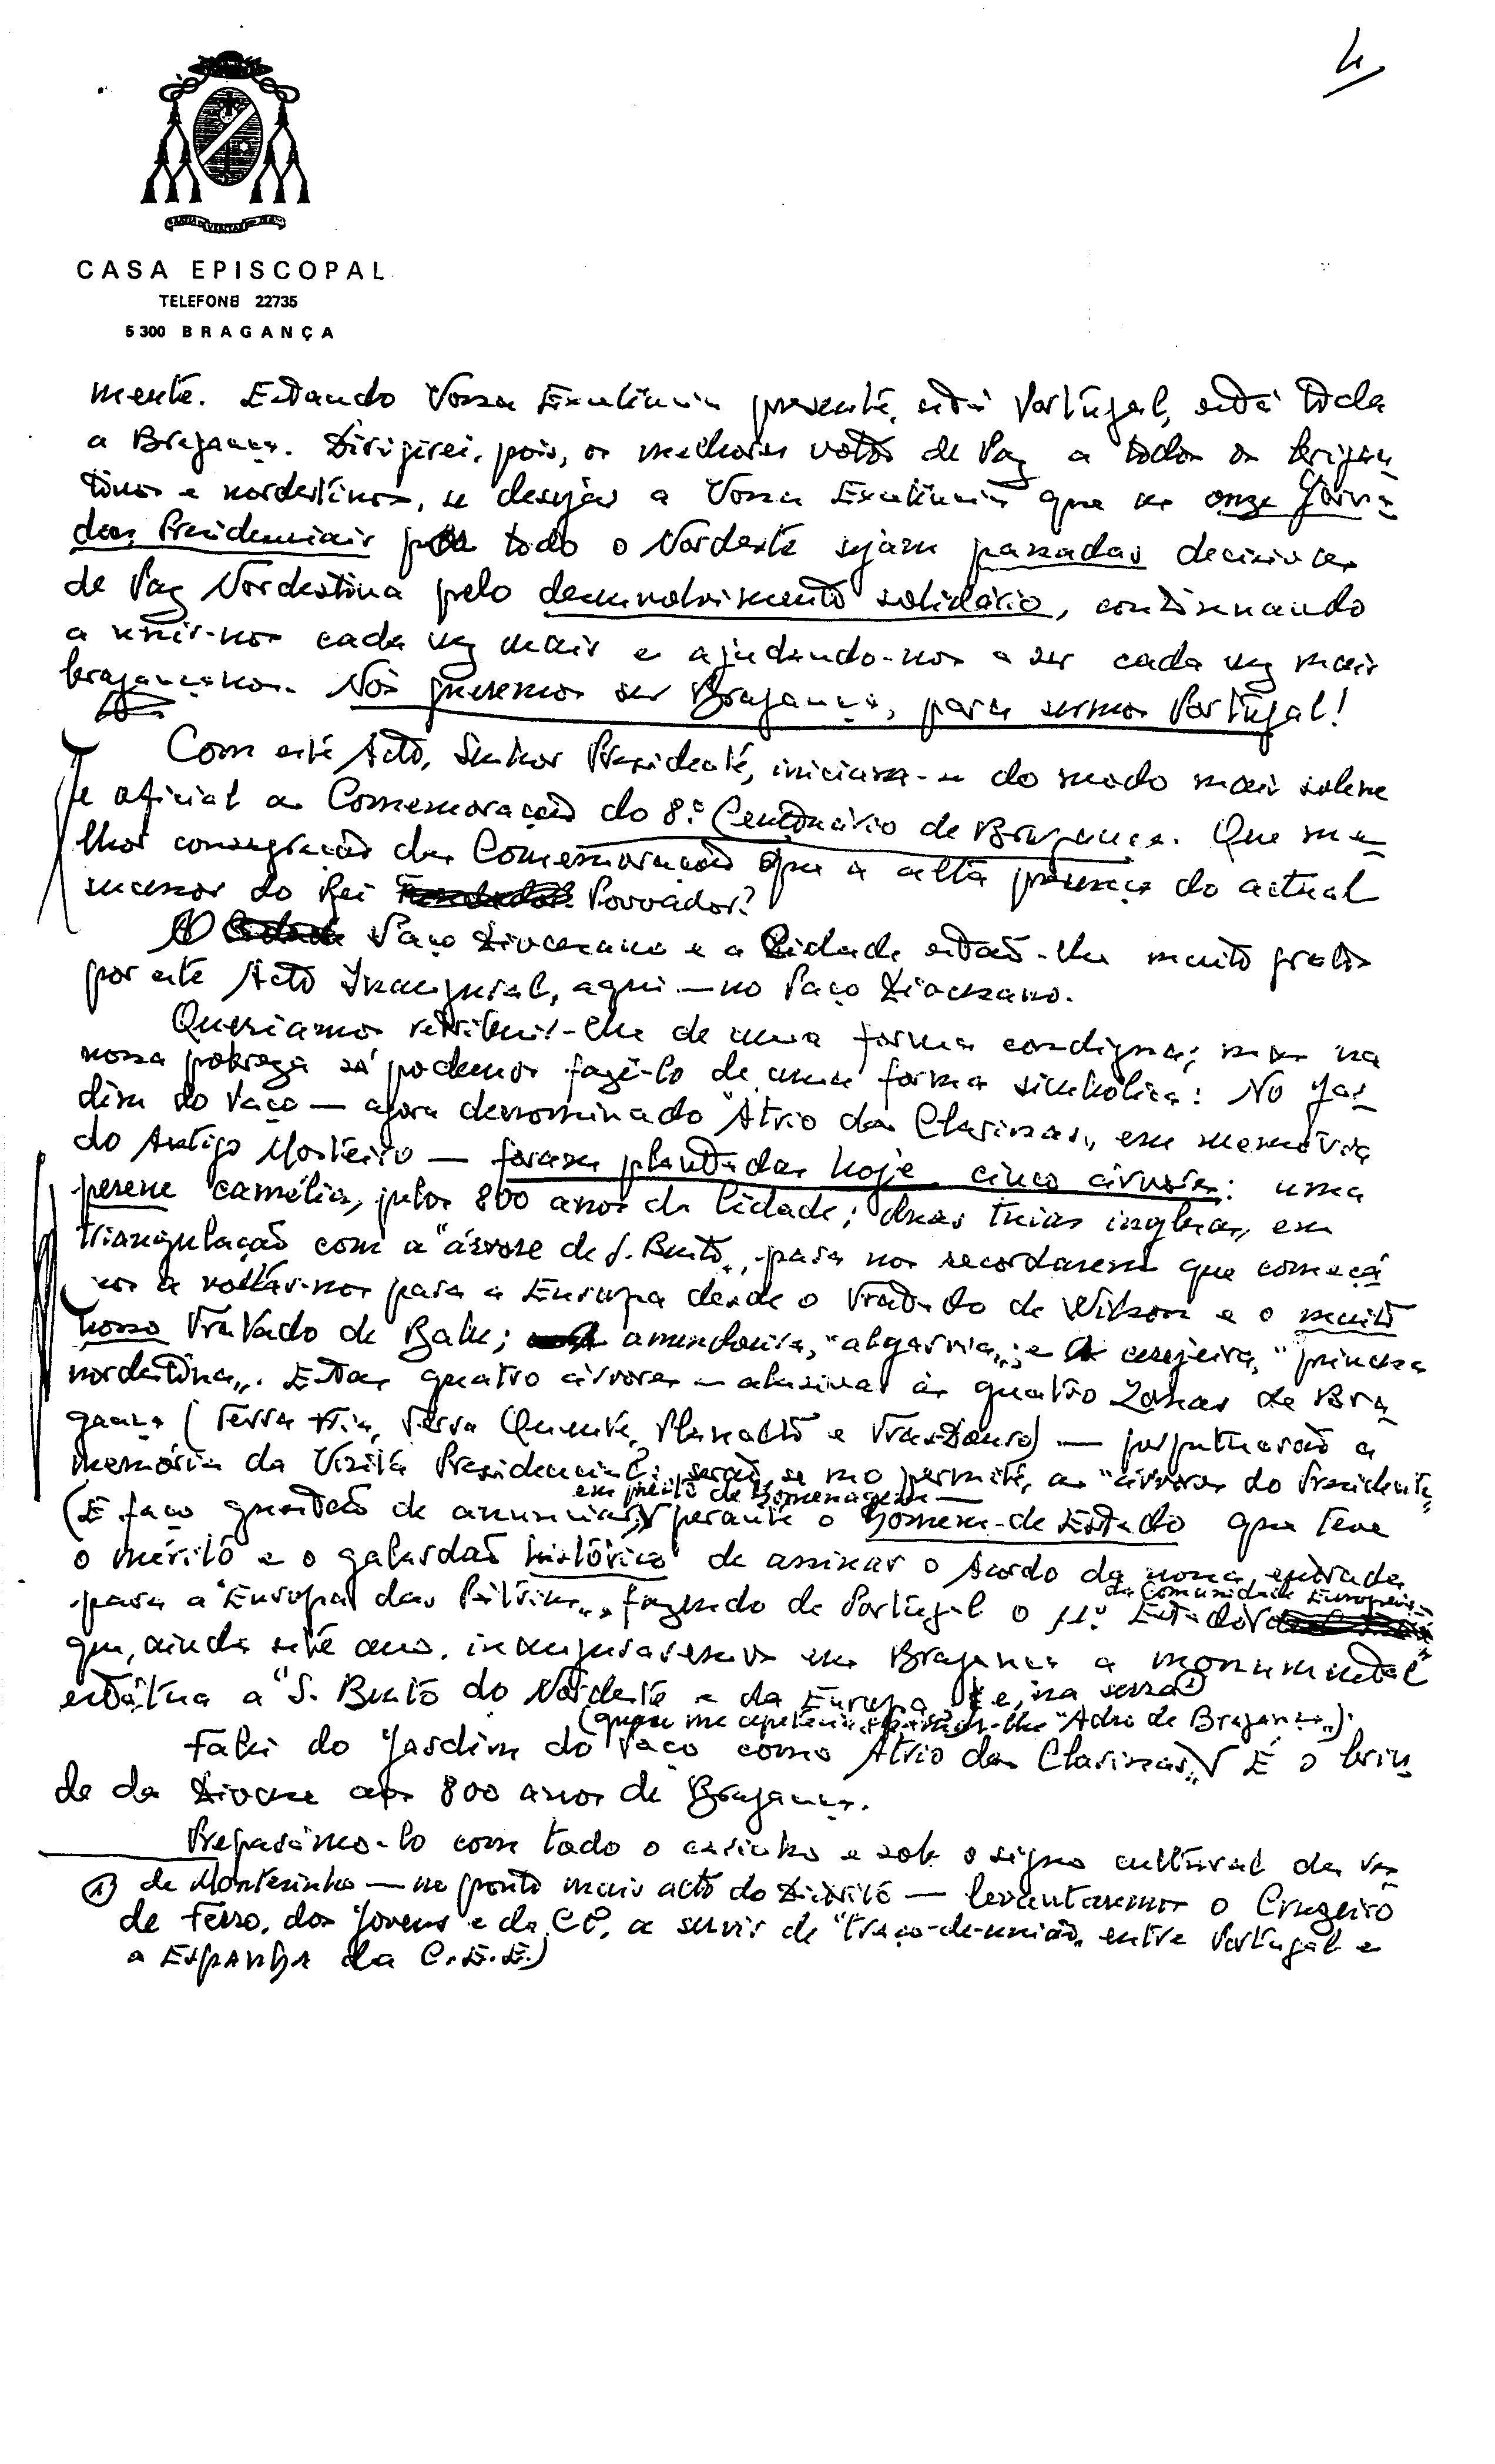 4
CASA EPISCOPAL
TELEFONE 22735
5300 BRAGANÇA
mente. Estando Vossa Excelência presente, está Portugal, está toda
a Bragança. Dirigirei, pois, os melhores votos de Paz a todos os brigan
tinos e nordestinos, se desejar a Vossa Excelência que as onze Jorna-
das Presidenciais por todo o Nordeste sejam passadas decisivas
de Paz Nordestina pelo desenvolvimento solidário, continuando
a unir-nos cada vez mais e ajudando-nos a ser cada vez mais
bragançanos. Nós queremos ser Bragança, para sermos Portugal!
Com este Acto, Senhor Presidente, iniciam-se do modo mais solene
e oficial as Comemorações do 8.º Centenário de Bragança. Que me-
lhor consagração das Comemorações que a alta presença do actual
sucessor do Rei Povoador?
O Paço Diocesano e a Cidade estão-lhe muito gratos
por este Acto Inaugural, aqui — no Paço Diocesano.
Queríamos retribuir-lhe de uma forma condigna; mas na
nossa pobreza só podemos fazê-lo de uma forma simbólica: No Jar-
dim do Paço — agora denominado "Átrio das Clarissas", em memória
do Antigo Mosteiro — foram plantadas hoje cinco árvores: uma
perene camélia, pelos 800 anos da Cidade; duas tuias inglesas, em
triangulação com a "árvore de S. Bento", para nos recordarem que começá
mos a voltar-nos para a Europa desde o Tratado de Windsor e o muito
nosso Tratado de Babe; amendoeira, "algarvia"; e cerejeira, "princesa
nordestina". Estas quatro árvores — alusivas às quatro Zonas de Bra
gança (Terra Fria, Terra Quente, Planalto e Tras-Douro) — perpetuarão a
memória da Visita Presidencial: serão, se mo permite, as "árvores do Presidente"
em preito de homenagem —
(E faço questão de anunciar perante o Homem-de-Estado que teve
o mérito e o galardão histórico de assinar o Acordo da nossa entrada
da Comunidade Europeia
para a "Europa das Pátrias", fazendo de Portugal o 11.º Estado
que, ainda este ano, inauguraremos em Bragança a monumental
estátua a "S. Bento do Nordeste e da Europa" e, na serra ①
(quase me apetecia chamar-lhe "Adro de Bragança").
Falei do Jardim do Paço como Átrio das Clarissas". É o brin
de da Diocese aos 800 anos de Bragança.
Preparámo-lo com todo o carinho e sob o signo cultural da
① de Montesinho — no ponto mais alto do Distrito — levantaremos o Cruzeiro
de Ferro, dos Jovens e da CP, a servir de "traço-de-união" entre Portugal e
a Espanha da C.E.E.)